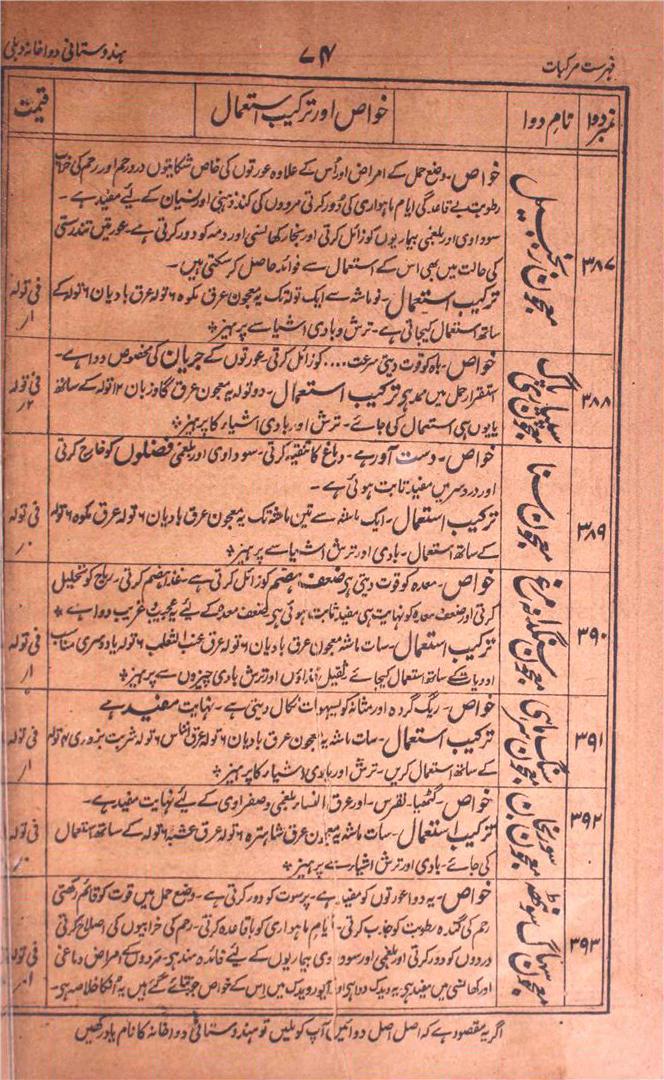 فہرست مرکبات
۷۴
ہندوستانی دواخانہ دہلی
نمبر دوا
نام دوا
خواص اور ترکیب استعمال
قیمت
۳۸۷
معجون زنجبیل
خواص۔ وضع حمل کے امراض اور اُس کے علاوہ عورتوں کی خاص شکایتوں درد رحم اور رحم کی خراب
رطوبت بے قاعدگی ایام ماہواری کی دور کرتی مردوں کی کند ذہنی اور نسیان کے لئے مفید ہے۔
سوداوی اور بلغمی بیماریوں کو زائل کرتی اور بخار کھانسی اور دمہ کو دور کرتی ہے۔ عورتیں تندرستی
کی حالت میں بھی اس کے استعمال سے فوائد حاصل کر سکتی ہیں۔
ترکیب استعمال۔ نو ماشہ سے ایک تولہ تک یہ معجون عرق مکوہ ۶ تولہ عرق بادیان ۶ تولہ کے
ساتھ استعمال کیجاتی ہے۔ ترش و بادی اشیا سے پرہیز
فی تولہ
۱ر
۳۸۸
معجون سپیاری پاگ
خواص۔ باہ کو قوت دیتی سرعت .... کو زائل کرتی۔ عورتوں کے جریان کی مخصوص دوا ہے۔
استقرار حمل میں ممد ہے ترکیب استعمال۔ دو تولہ یہ معجون عرق گاوزبان ۱۲ تولہ کے ساتھ
یا یوں ہی استعمال کی جائے۔ ترش اور بادی اشیاء کا پرہیز
فی تولہ
۲ر
۳۸۹
معجون سنا
خواص۔ دست آور ہے۔ دماغ کا تنقیہ کرتی۔ سوداوی اور بلغمی فضلوں کو خارج کرتی
اور درد سر میں مفید ثابت ہوئی ہے۔
ترکیب استعمال۔ ایک ماشہ سے تین ماشہ تک یہ معجون عرق بادیان ۶ تولہ عرق مکوہ ۶ تولہ
کے ساتھ استعمال۔ بادی اور ترش اشیا سے پرہیز
فی تولہ
۳۹۰
معجون سنگدانہ مرغ
خواص۔ معدہ کو قوت دیتی ہے ضعف ہضم کو زائل کرتی ہے۔ غذا ہضم کرتی۔ ریاح کو تحلیل
کرتی اور ضعف معدہ کو نہایت ہی مفید ثابت ہوئی ہے ضعف معدہ کے لئے عجیب غریب دوا ہے
ترکیب استعمال۔ سات ماشہ معجون عرق بادیان ۶ تولہ عرق عنب الثعلب ۶ تولہ یا دوسری مناسب
ادویات کے ساتھ استعمال کیجائے ثقیل غذاؤں اور ترش بادی چیزوں سے پرہیز
فی تولہ
۱ر
۳۹۱
معجون سنگ سرماہی
خواص۔ ریگ گردہ اور مثانہ کو بسہولت نکال دیتی ہے۔ نہایت مفید ہے
ترکیب استعمال۔ سات ماشہ یہ معجون عرق بادیان ۶ تولہ عرق انناس ۶ تولہ شربت بزوری ۴ تولہ
کے ساتھ استعمال کریں۔ ترش اور بادی اشیاء کا پرہیز
فی تولہ
۱ر
۳۹۲
معجون سورنجان
خواص۔ گٹھیا۔ نقرس۔ اور عرق النسا بلغمی و صفراوی کے لئے نہایت مفید ہے۔
ترکیب استعمال۔ سات ماشہ یہ معجون عرق شاہترہ ۶ تولہ عرق عشبہ ۶ تولہ کے ساتھ استعمال
کی جائے۔ بادی اور ترش اشیا سے پرہیز
فی تولہ
۳۹۳
معجون سہاگ سونٹھ
خواص۔ یہ دوا عورتوں کو مفید ہے۔ پرسوت کو دور کرتی ہے۔ وضع حمل میں قوت کو قائم رکھتی
رحم کی گندہ رطوبت کو جذب کرتی۔ ایام ماہواری کو باقاعدہ کرتی۔ رحم کی خرابیوں کی اصلاح کرتی
دردوں کو دور کرتی اور بلغمی اور سوداوی بیماریوں کے لئے فائدہ مند ہے۔ مردوں کے امراض دماغی
اور کھانسی میں مفید ہے یہ ویدک دوا ہے اور آیورویدک میں اس کے خواص جو بتائے گئے ہیں یہ انکا خلاصہ ہے۔
فی تولہ
اگر یہ مقصود ہے کہ اصل اصل دوائیں آپ کو ملیں تو ہندوستانی دواخانہ کا نام یاد رکھیں